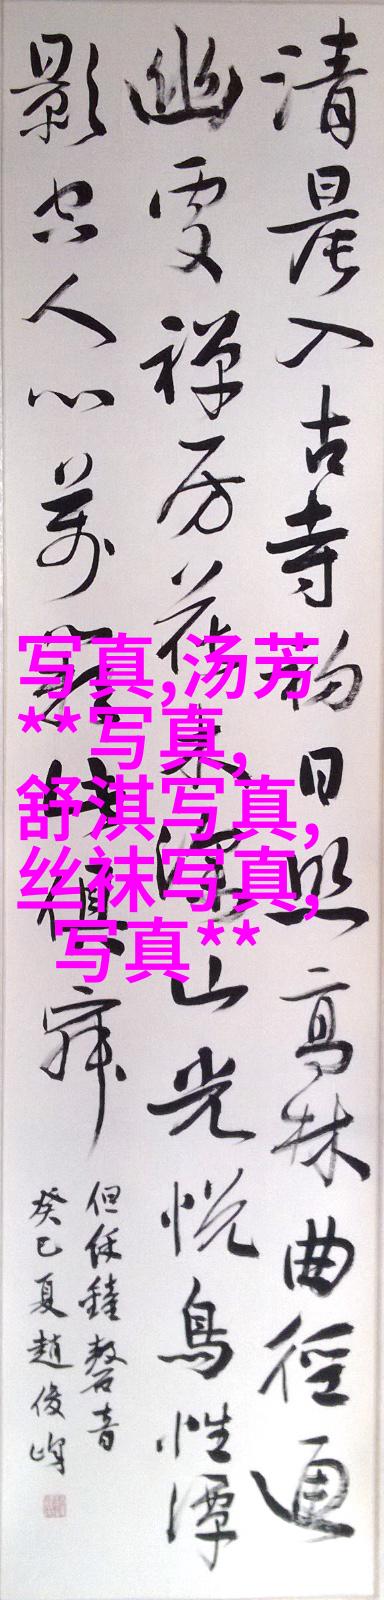 清晨入古寺初日照高林曲徑通
幽處禅房花木深山光悅鳥性潭
影空人心萬籟此俱寂
但餘鐘磬音
癸巳夏趙俊峰
写真,汤芳
**写真,
舒淇写真,
丝袜写真,
写真**